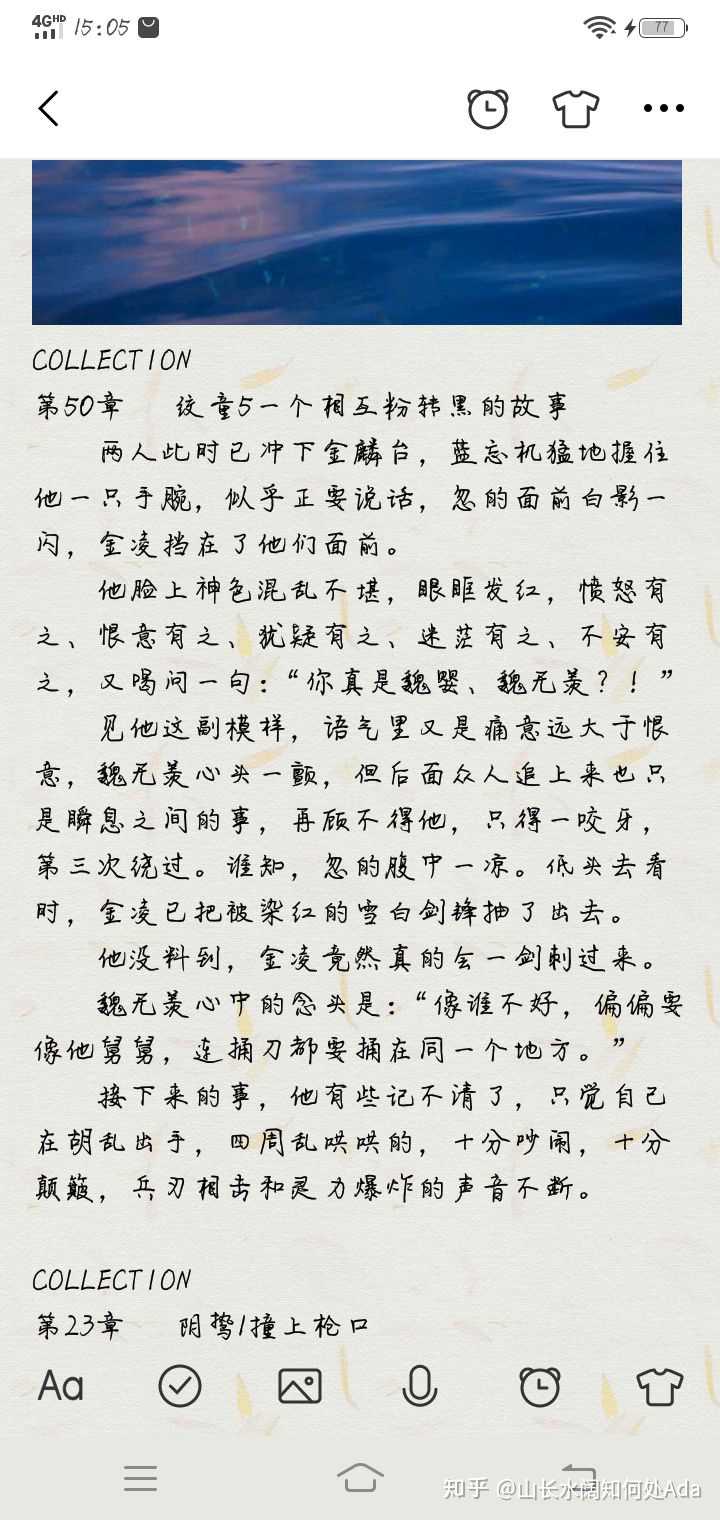 4G HD 15:05 77
COLLECTION
第50章 绞童5一个相互粉转黑的故事
两人此时已冲下金麟台，蓝忘机猛地握住
他一只手腕，似乎正要说话，忽的面前白影一
闪，金凌挡在了他们面前。
他脸上神色混乱不堪，眼眶发红，愤怒有
之、恨意有之、犹疑有之、迷茫有之、不安有
之，又喝问一句：“你真是魏婴、魏无羡？！”
见他这副模样，语气里又是痛意远大于恨
意，魏无羡心头一颤，但后面众人追上来也只
是瞬息之间的事，再顾不得他，只得一咬牙，
第三次绕过。谁知，忽的腹中一凉。低头去看
时，金凌已把被染红的雪白剑锋抽了出去。
他没料到，金凌竟然真的会一剑刺过来。
魏无羡心中的念头是：“像谁不好，偏偏要
像他舅舅，连捅刀都要捅在同一个地方。”
接下来的事，他有些记不清了，只觉自己
在胡乱出手，四周乱哄哄的，十分吵闹，十分
颠簸，兵刃相击和灵力爆炸的声音不断。
COLLECTION
第23章 阴鸷1撞上枪口
Aa
知乎 @山长水阔知何处Ada